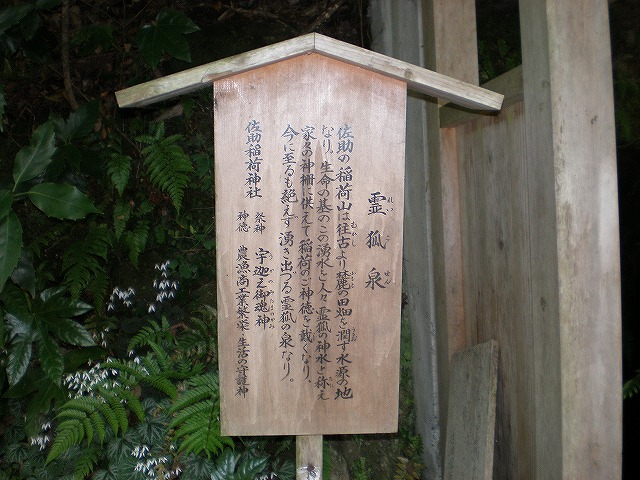 霊狐泉
れいこせん
佐助の稲荷山は往古より麓の田畑を潤す水源の地
なり。生命の基のこの湧水を人々霊狐の神水と称え
家々の神棚に供えて稲荷のご神徳を戴くなり、
今に至るも絶えず湧き出づる霊狐の泉なり。
佐助稲荷神社
祭神 宇迦之御魂神
神徳 農漁商工業繁栄 生活の守護神